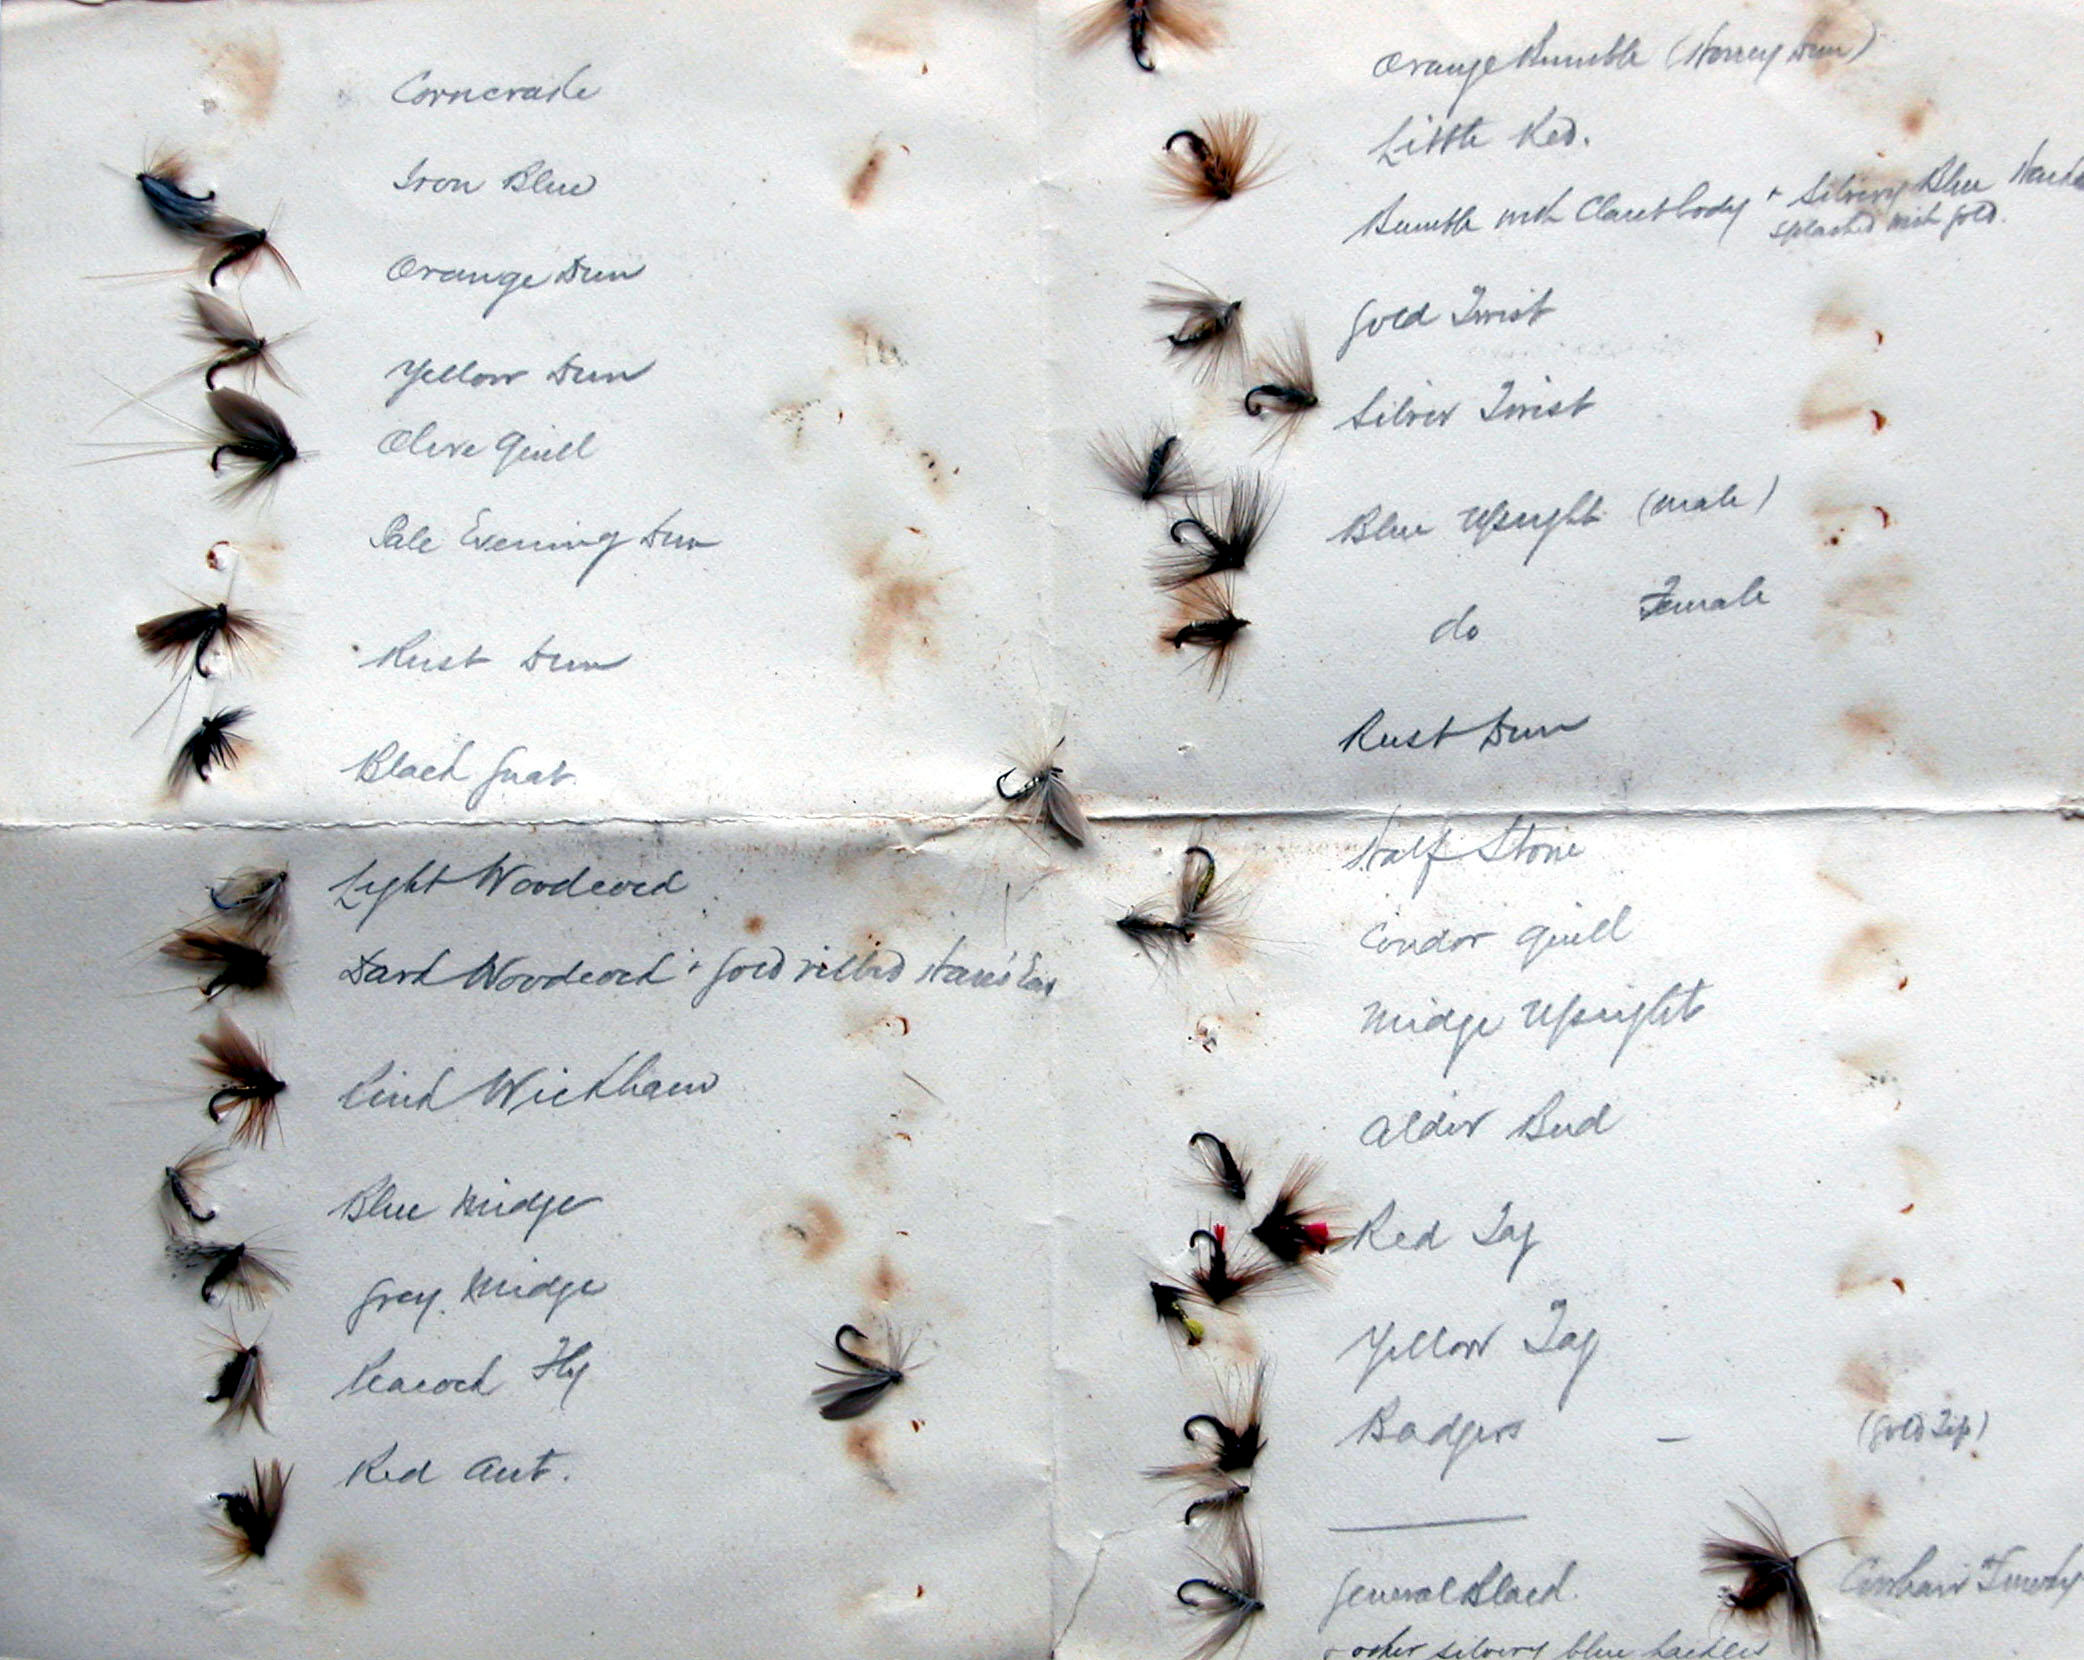 Corncrake
Iron Blue
Orange Dun
Yellow Dun
Olive Quill
Pale Evening Dun
Rust Dun
Black Gnat.
Light Woodcock
Dark Woodcock + Gold ribbed Hare's Ear
Pink Wickham
Blue Midge
Grey Midge
Peacock Fly
Red Ant.
Orange Bumble (Honey Dun)
Little Red.
Bumble with Claret body + Silvery Blue
splashed with gold.
Gold Twist
Silver Twist
Blue Upright (male)
do Female
Rust Dun
Half Stone
Condor Quill
Midge Upright
Alder Bud
Red Tag
Yellow Tag
Badgers - (Gold Tip)
General Black.
+ other silvery blue hackles